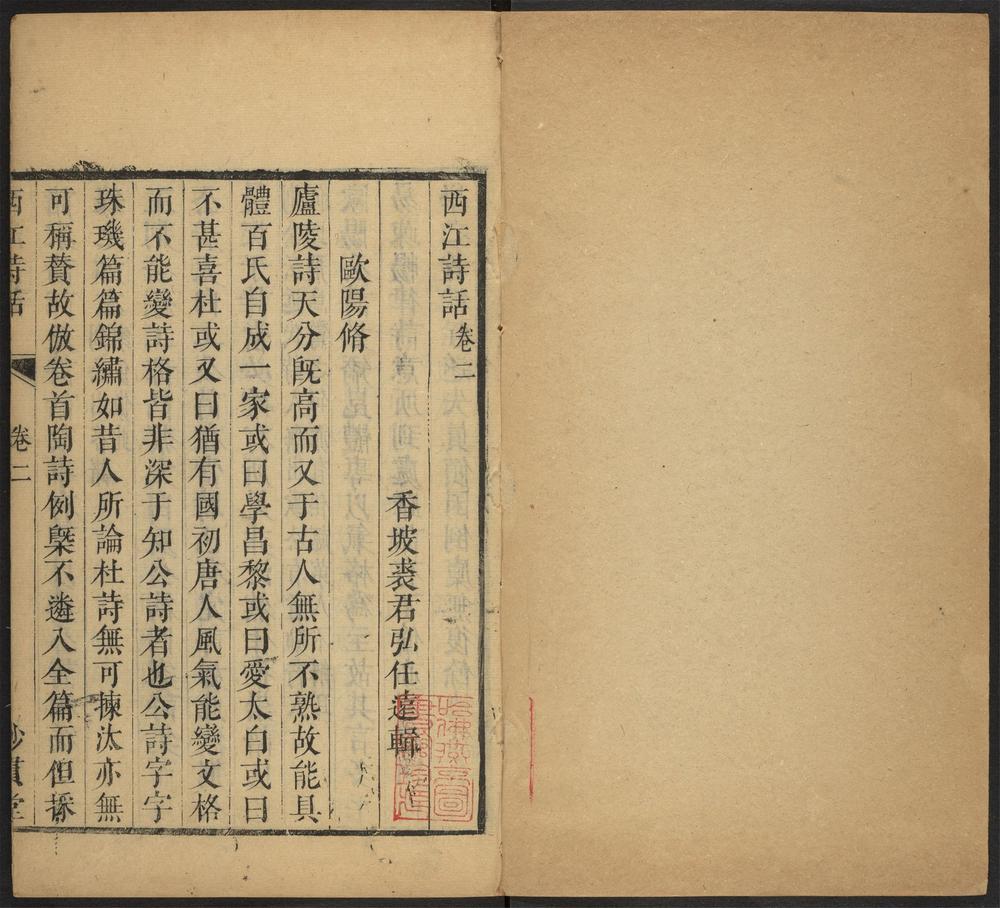 西江詩話卷二
香坡裘君弘任遠輯
歐陽脩
廬陵詩天分旣高而又于古人無所不熟故能具
體百氏自成一家或曰學昌黎或曰愛太白或曰
不甚喜杜或又曰猶有國初唐人風氣能變文格
而不能變詩格皆非深于知公詩者也公詩字字
珠璣篇篇錦繡如昔人所論杜詩無可揀汰亦無
可稱賛故倣卷首陶詩例槩不遴入全篇而但採
西江詩話 卷二 妙貫堂